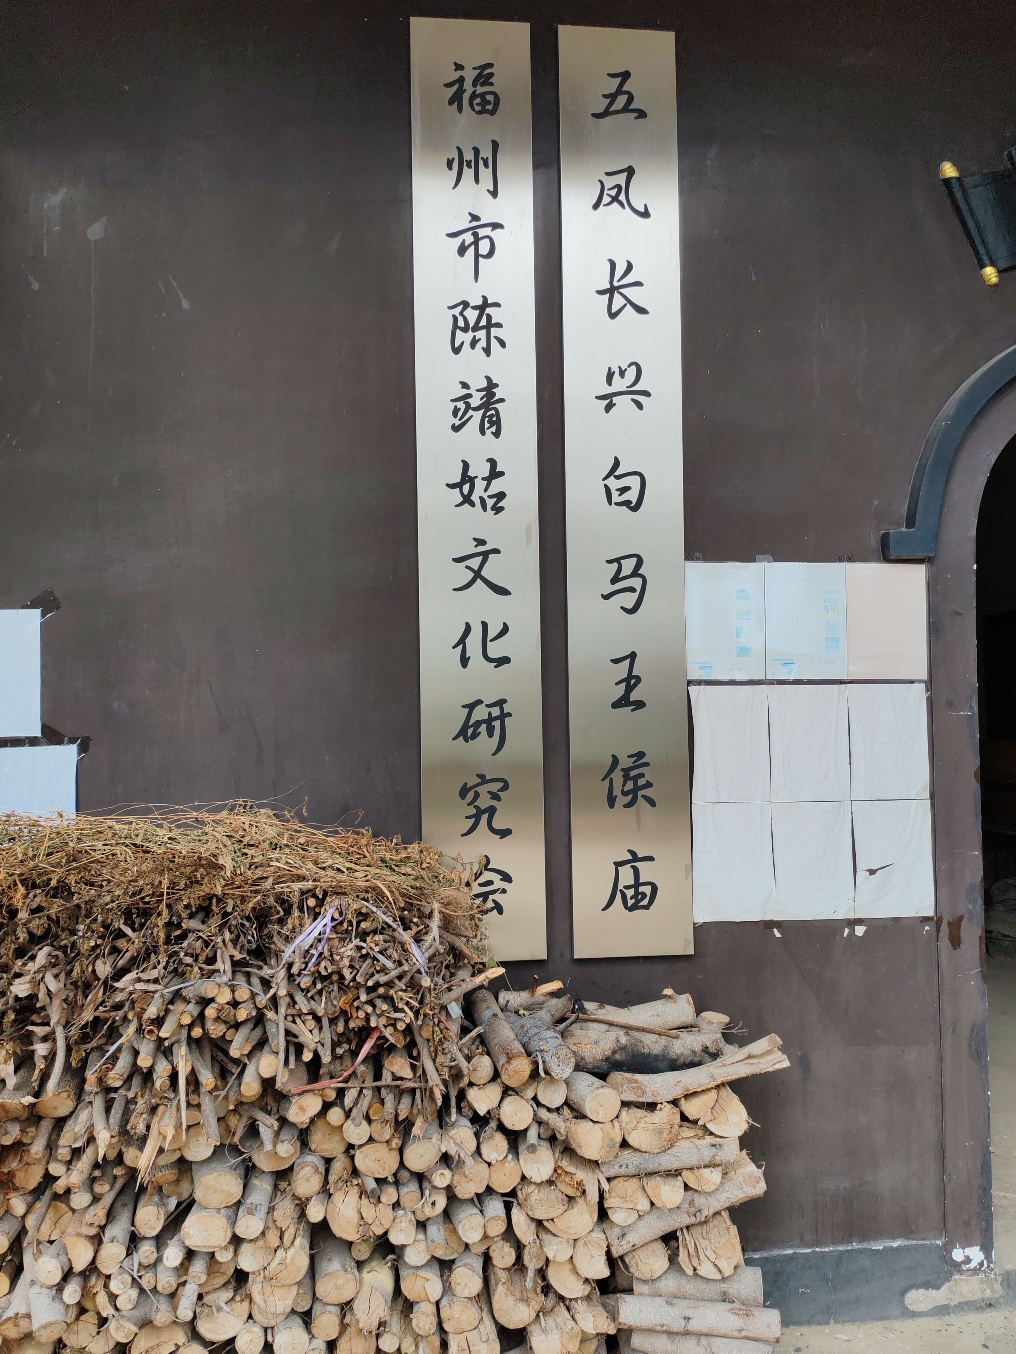 福州市陈靖姑文化研究会
五凤长兴白马王侯庙